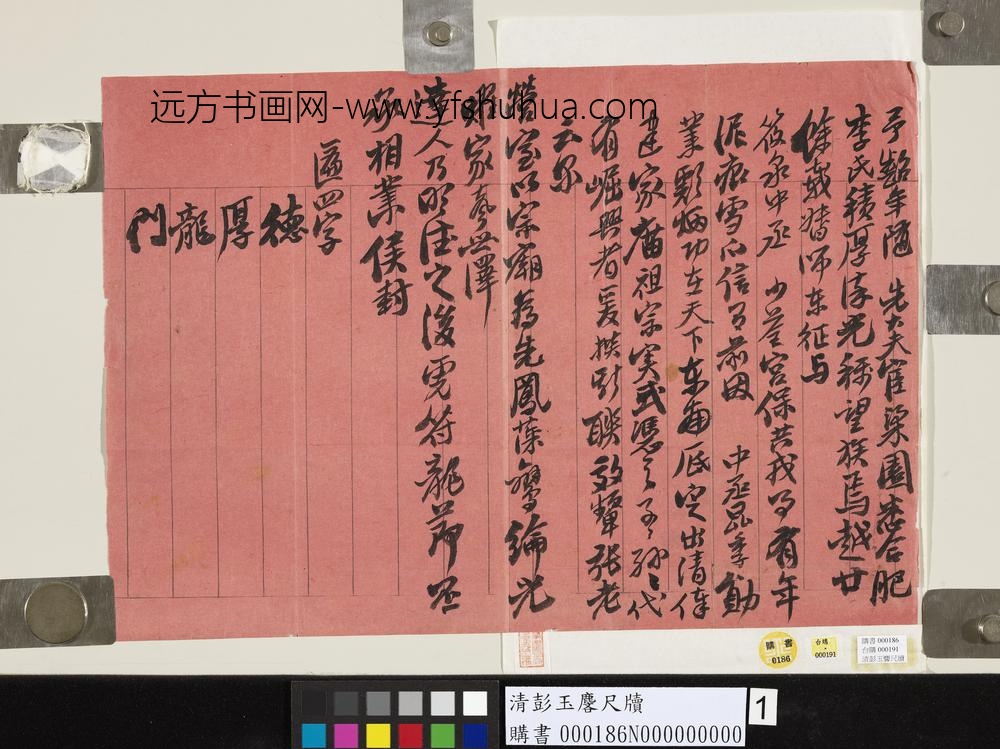 予髫年随 先大夫宦梁園悉合肥
李氏積厚流光稱望族焉越廿
餘載 師东征与
筱泉中丞 少荃宮保共戎馬有年
泥痕雪爪信有前因 中丞昆季勳
業彪炳功在天下東南底定出清俸
建家廟祖宗実式憑之子子孫孫代
有崛興者爰撰 聯 張老
云尔
營室以宗廟為先鳳藻鸞綸光
 家慶 澤
達人乃明德之後 符龍節
 相業侯封
匾四字
德
厚
龍
門
远方书画网-www.yfshuhua.com
購書
0186
台購
000191
購書 000186
台購 000191
清彭玉麐尺牘
清彭玉麐尺牘
購書 000186N000000000
1